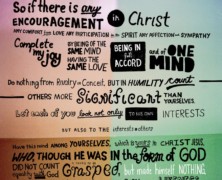 So if there is any
ENCOURAGEMENT in Christ
ANY COMFORT from LOVE ANY PARTICIPATION in the SPIRIT ANY AFFECTION and SYMPATHY
Complete my joy BY BEING OF THE SAME MIND HAVING THE SAME LOVE BEING IN full ACCORD and of ONE MIND
Do nothing from Rivalry or Conceit, BUT IN HUMILITY count
OTHERS MORE Significant THAN YOURSELVES.
Let each of you LOOK not only TO HIS OWN INTERESTS
BUT ALSO TO THE interests of others
Have this mind AMONG YOURSELVES, which is yours in CHRIST JESUS
WHO THOUGH HE WAS IN the form OF GOD
DID NOT COUNT GOD Grasped, but made himself NOTHING,